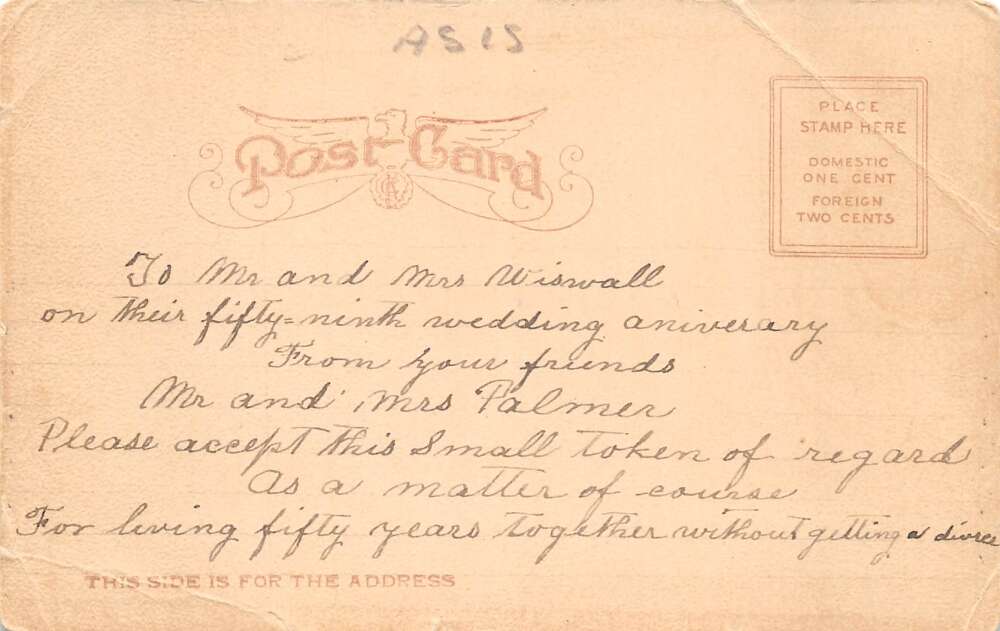 AS IS
Post Card
PLACE
STAMP HERE
DOMESTIC
ONE CENT
FOREIGN
TWO CENTS
To Mr and Mrs Wiswall
on their fifty=ninth wedding aniverary
From your friends
Mr and Mrs Palmer
Please accept this Small token of regard
As a matter of course
For living fifty years together without getting a divorce
THIS SIDE IS FOR THE ADDRESS